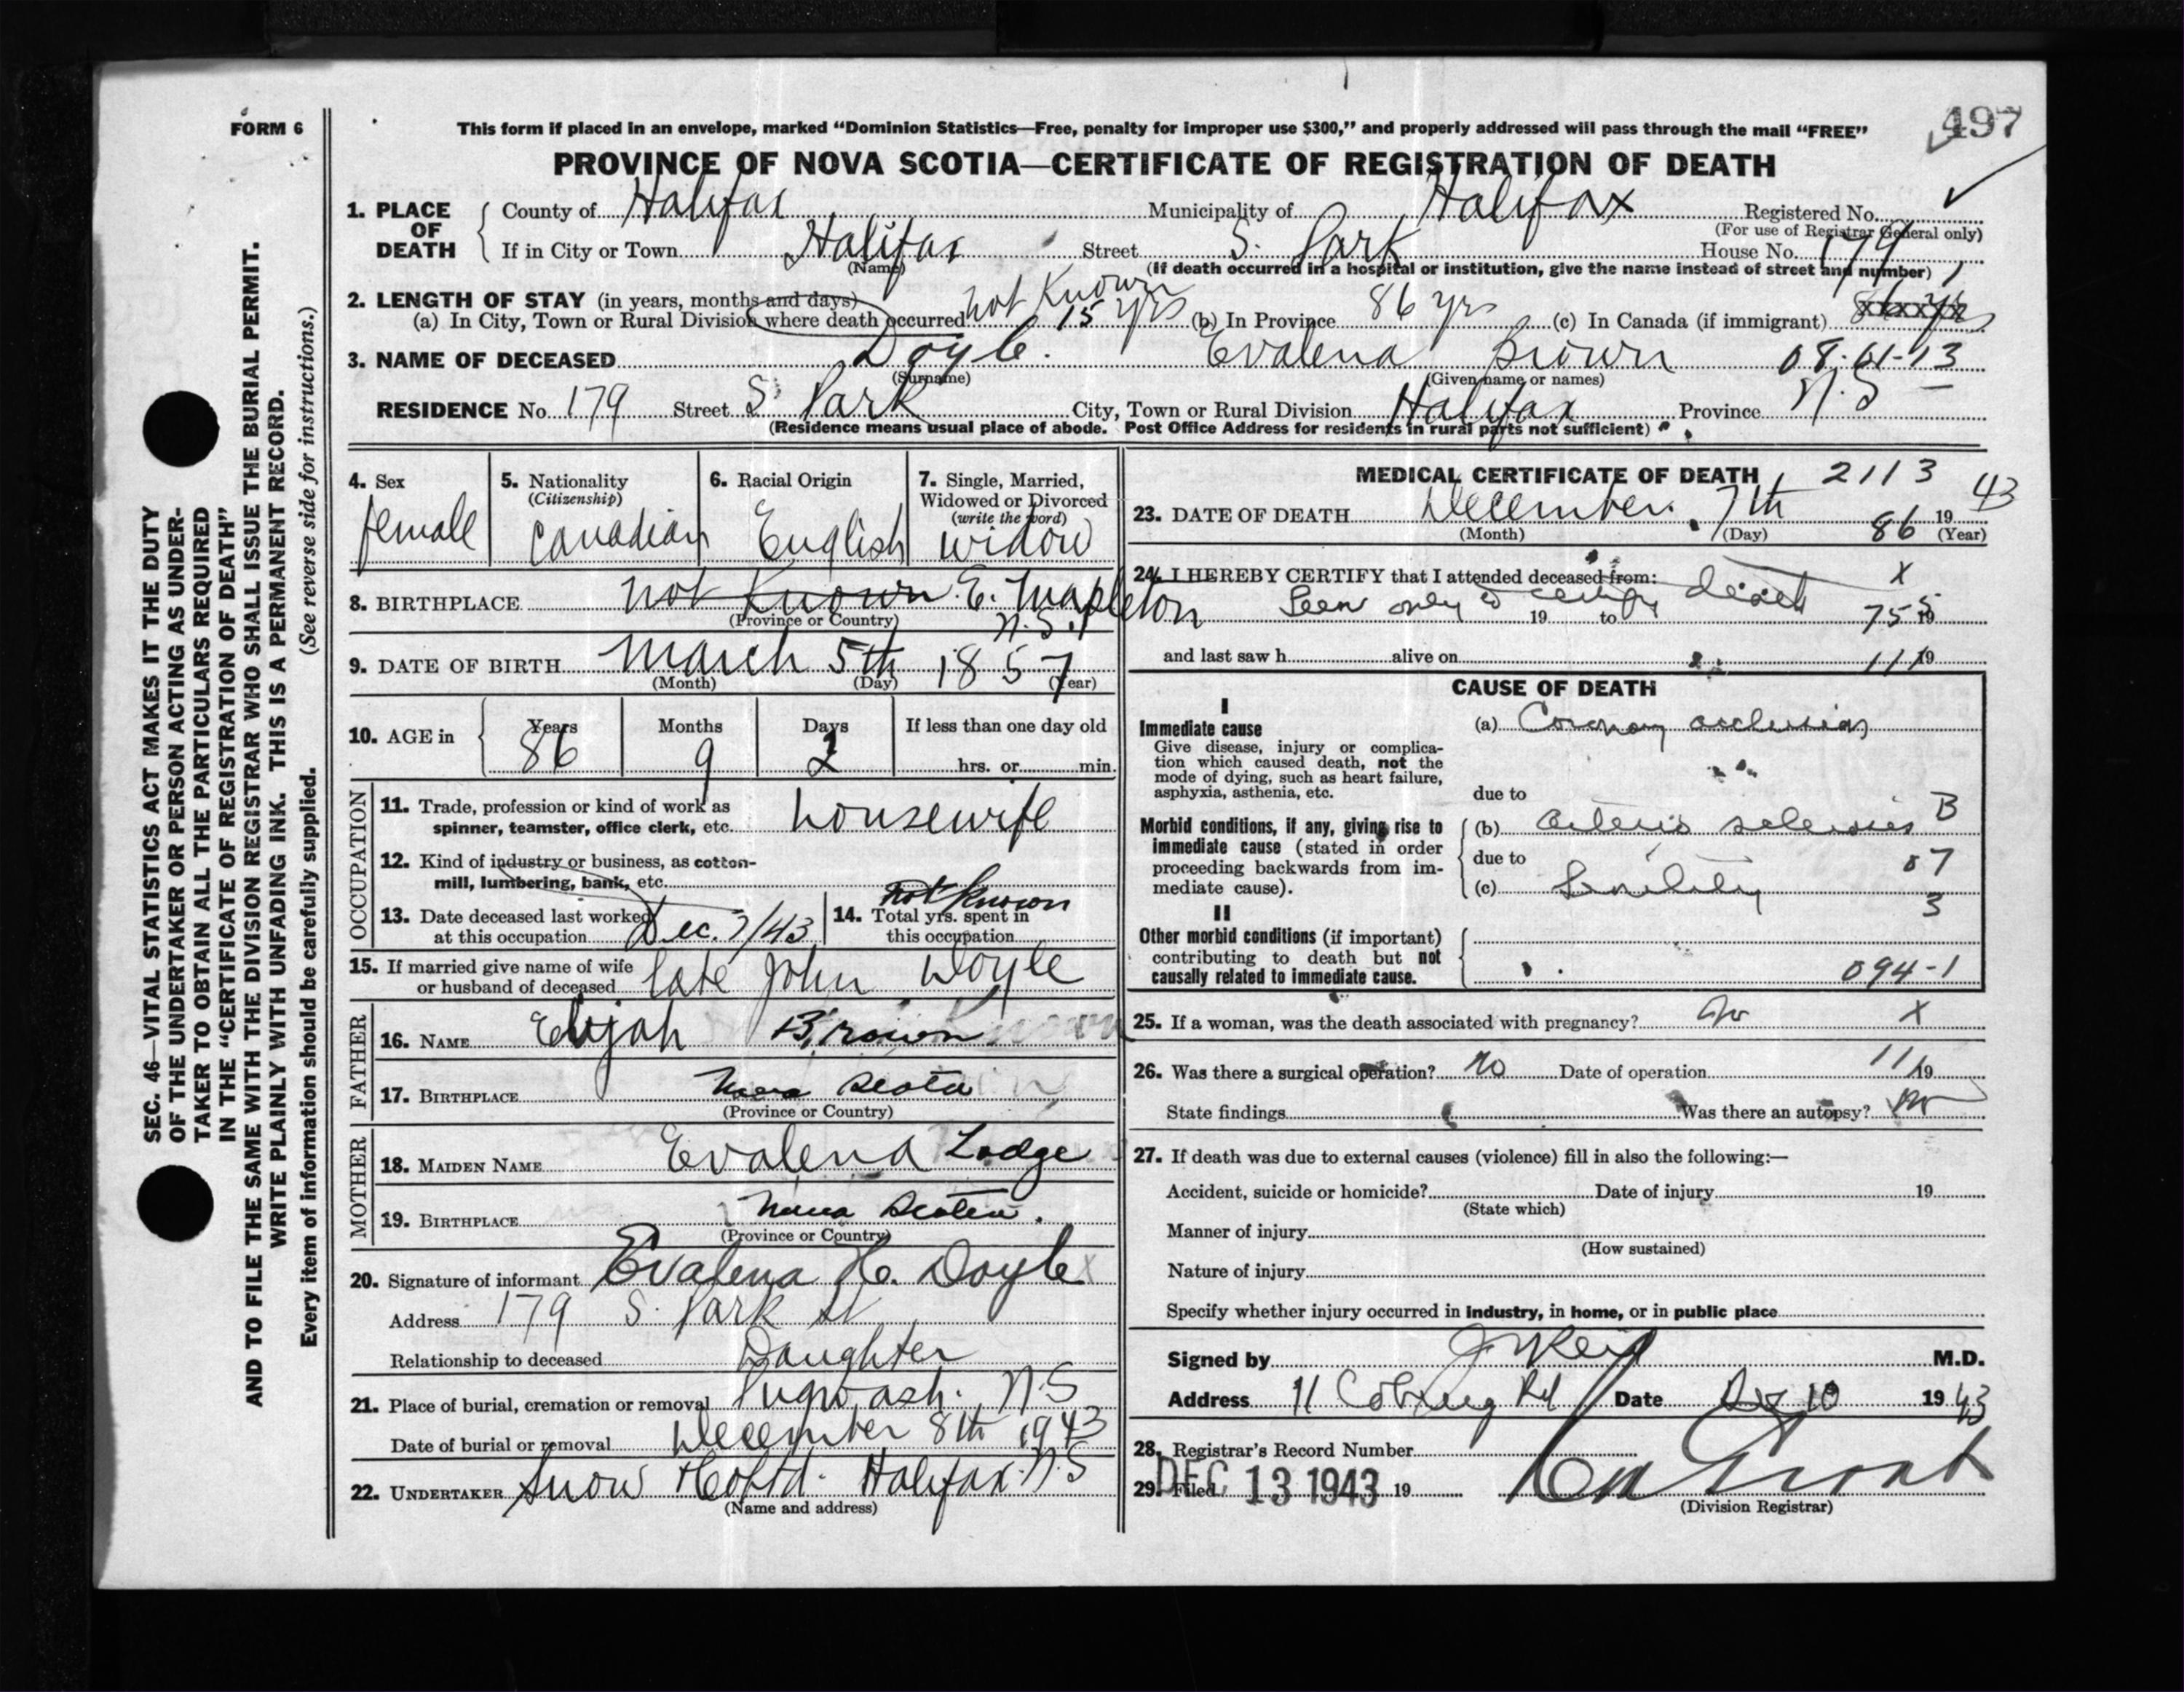 497
FORM 6
This form if placed in an envelope, marked "Dominion Statistics—Free, penalty for improper use $300," and properly addressed will pass through the mail "FREE"
PROVINCE OF NOVA SCOTIA—CERTIFICATE OF REGISTRATION OF DEATH
1. PLACE OF DEATH County of Halifax Municipality of Halifax Registered No.
(For use of Registrar General only)
If in City or Town Halifax Street S. Park House No. 179
(Name) (If death occurred in a hospital or institution, give the name instead of street and number)
2. LENGTH OF STAY (in years, months and days) not known
(a) In City, Town or Rural Division where death occurred 15 yrs (b) In Province 86 yrs (c) In Canada (if immigrant)
3. NAME OF DECEASED Doyle. Evalena Brown 08-61-13
(Surname) (Given name or names)
RESIDENCE No. 179 Street S. Park City, Town or Rural Division Halifax Province N.S
(Residence means usual place of abode. Post Office Address for residents in rural parts not sufficient)
4. Sex female
5. Nationality (Citizenship) Canadian
6. Racial Origin English
7. Single, Married, Widowed or Divorced (write the word) widow
8. BIRTHPLACE not known E. Mapleton N.S.
(Province or Country)
9. DATE OF BIRTH March 5th 1857
(Month) (Day) (Year)
10. AGE in Years 86 Months 9 Days 2 If less than one day old hrs. or min.
OCCUPATION
11. Trade, profession or kind of work as spinner, teamster, office clerk, etc. housewife
12. Kind of industry or business, as cotton-mill, lumbering, bank, etc.
13. Date deceased last worked at this occupation Dec. 7/43
14. Total yrs. spent in this occupation not known
15. If married give name of wife or husband of deceased late John Doyle
FATHER
16. NAME Elijah Brown
17. BIRTHPLACE Nova Scotia
(Province or Country)
MOTHER
18. MAIDEN NAME Evalena Lodge
19. BIRTHPLACE Nova Scotia.
(Province or Country)
20. Signature of informant Evalena H. Doyle
Address 179 S. Park St
Relationship to deceased Daughter
21. Place of burial, cremation or removal Pugwash. N.S
Date of burial or removal December 8th 1943
22. UNDERTAKER Snow & Co Ltd. Halifax. N.S
(Name and address)
MEDICAL CERTIFICATE OF DEATH 2113
23. DATE OF DEATH December. 7th 1943
(Month) (Day) 86 (Year)
24. I HEREBY CERTIFY that I attended deceased from: X
Seen only to certify death 19 to 755 19
and last saw h alive on 11 19
CAUSE OF DEATH
I
Immediate cause
Give disease, injury or complication which caused death, not the mode of dying, such as heart failure, asphyxia, asthenia, etc.
(a) Coronary occlusion
due to
Morbid conditions, if any, giving rise to immediate cause (stated in order proceeding backwards from immediate cause).
(b) Arterio sclerosis B
due to 07
(c) Senility 3
II
Other morbid conditions (if important) contributing to death but not causally related to immediate cause.
094-1
25. If a woman, was the death associated with pregnancy? No X
26. Was there a surgical operation? No Date of operation 11 19
State findings Was there an autopsy? No
27. If death was due to external causes (violence) fill in also the following:—
Accident, suicide or homicide? Date of injury 19
(State which)
Manner of injury
(How sustained)
Nature of injury
Specify whether injury occurred in industry, in home, or in public place
Signed by J W Reid M.D.
Address 11 Cobourg Rd Date Dec 10 1943
28. Registrar's Record Number
29. Filed DEC 13 1943 19
(Division Registrar)
SEC. 46—VITAL STATISTICS ACT MAKES IT THE DUTY
OF THE UNDERTAKER OR PERSON ACTING AS UNDER-
TAKER TO OBTAIN ALL THE PARTICULARS REQUIRED
IN THE "CERTIFICATE OF REGISTRATION OF DEATH"
AND TO FILE THE SAME WITH THE DIVISION REGISTRAR WHO SHALL ISSUE THE BURIAL PERMIT.
WRITE PLAINLY WITH UNFADING INK. THIS IS A PERMANENT RECORD.
Every item of information should be carefully supplied. (See reverse side for instructions.)